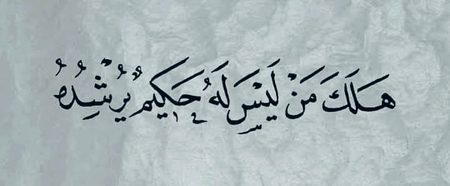 هَلَكَ مَنْ لَيْسَ لَهُ حَكِيمٌ يُرْشِدُهُ